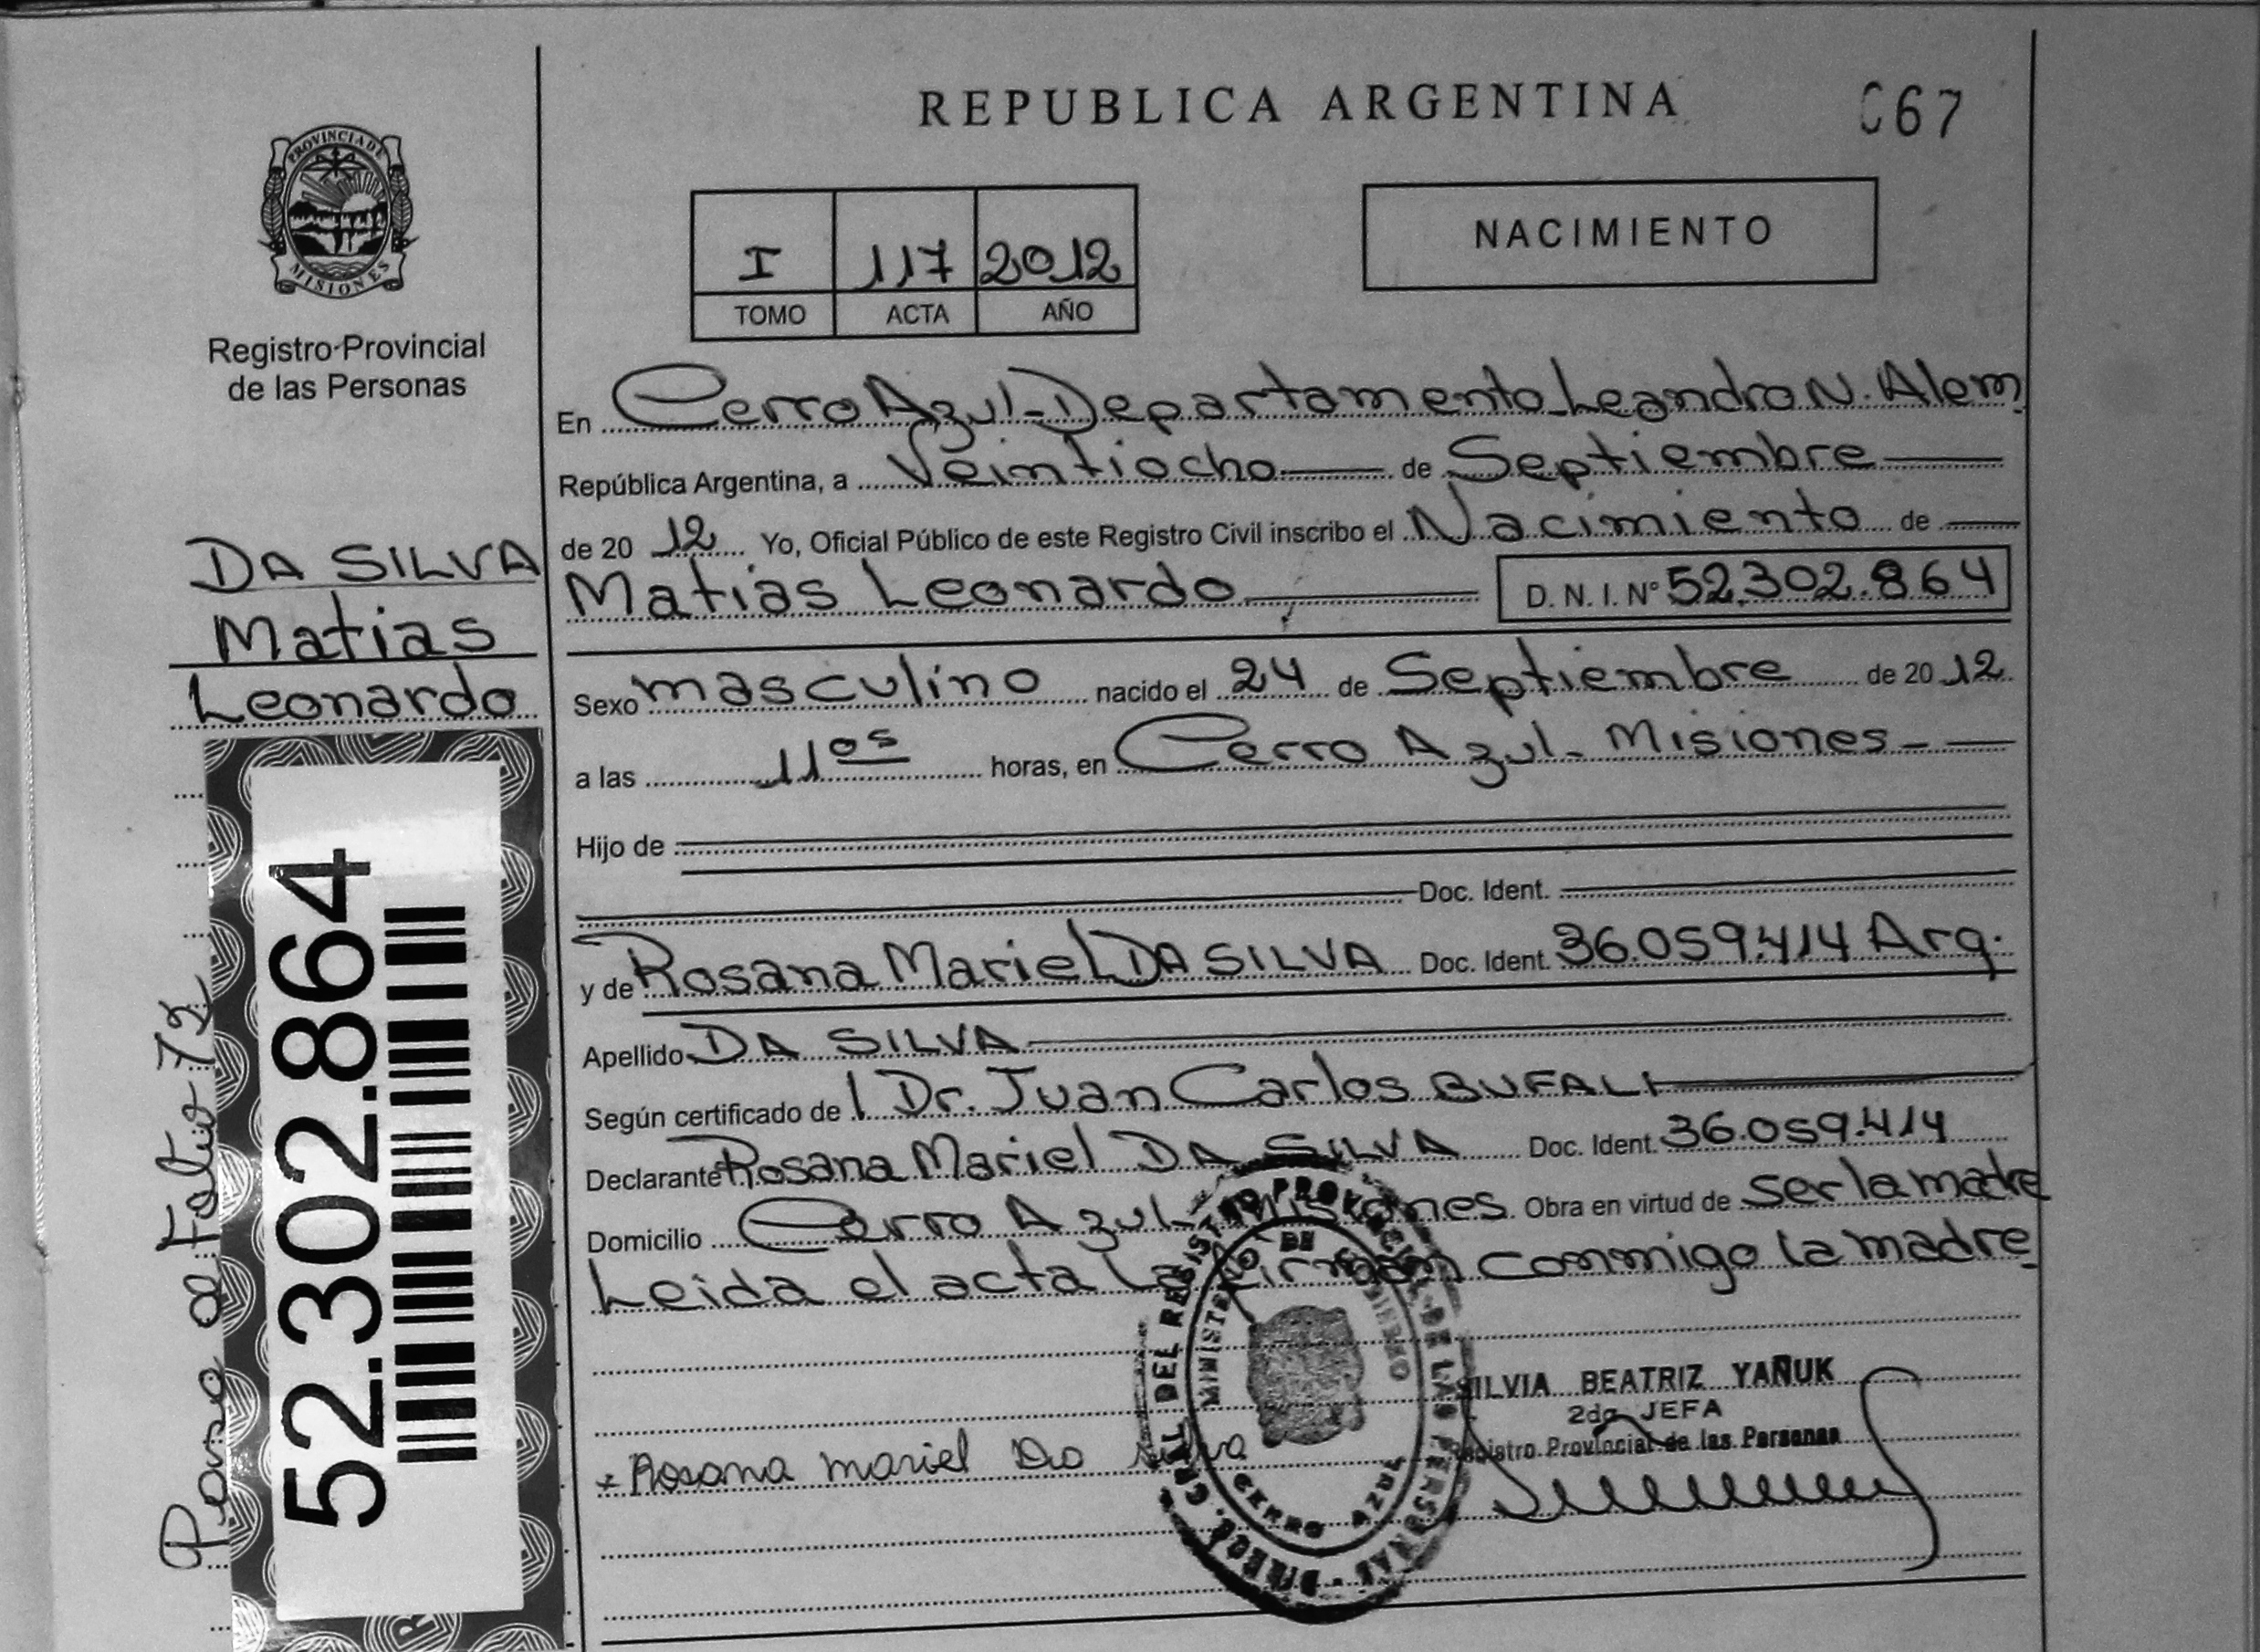 REPUBLICA ARGENTINA
C67
PROVINCIA DE
MISIONES
Registro Provincial
de las Personas
I 117 2012
TOMO ACTA AÑO
NACIMIENTO
En Cerro Azul - Departamento Leandro N. Alem
República Argentina, a Veintiocho de Septiembre
de 20 12 Yo, Oficial Público de este Registro Civil inscribo el Nacimiento de
Matias Leonardo D. N. I. Nº 52.302.864
DA SILVA
Matias
Leonardo
Sexo masculino nacido el 24 de Septiembre de 20 12
a las 11 os horas, en Cerro Azul - Misiones -
Hijo de
Doc. Ident.
y de Rosana Mariel DA SILVA Doc. Ident. 36.059.414 Arg.
Apellido DA SILVA
Según certificado de l Dr. Juan Carlos BUFALI
Declarante Rosana Mariel DA SILVA Doc. Ident. 36.059.414
Domicilio Cerro Azul - Misiones Obra en virtud de ser la madre
Leida el acta la firman conmigo la madre
52.302.864
DIRECC. GRAL DEL REGISTRO PROVINCIAL DE LAS PERSONAS
MINISTERIO DE GOBIERNO
CERRO AZUL
SILVIA BEATRIZ YAÑUK
2da JEFA
Registro Provincial de las Personas
Rosana mariel Da silva